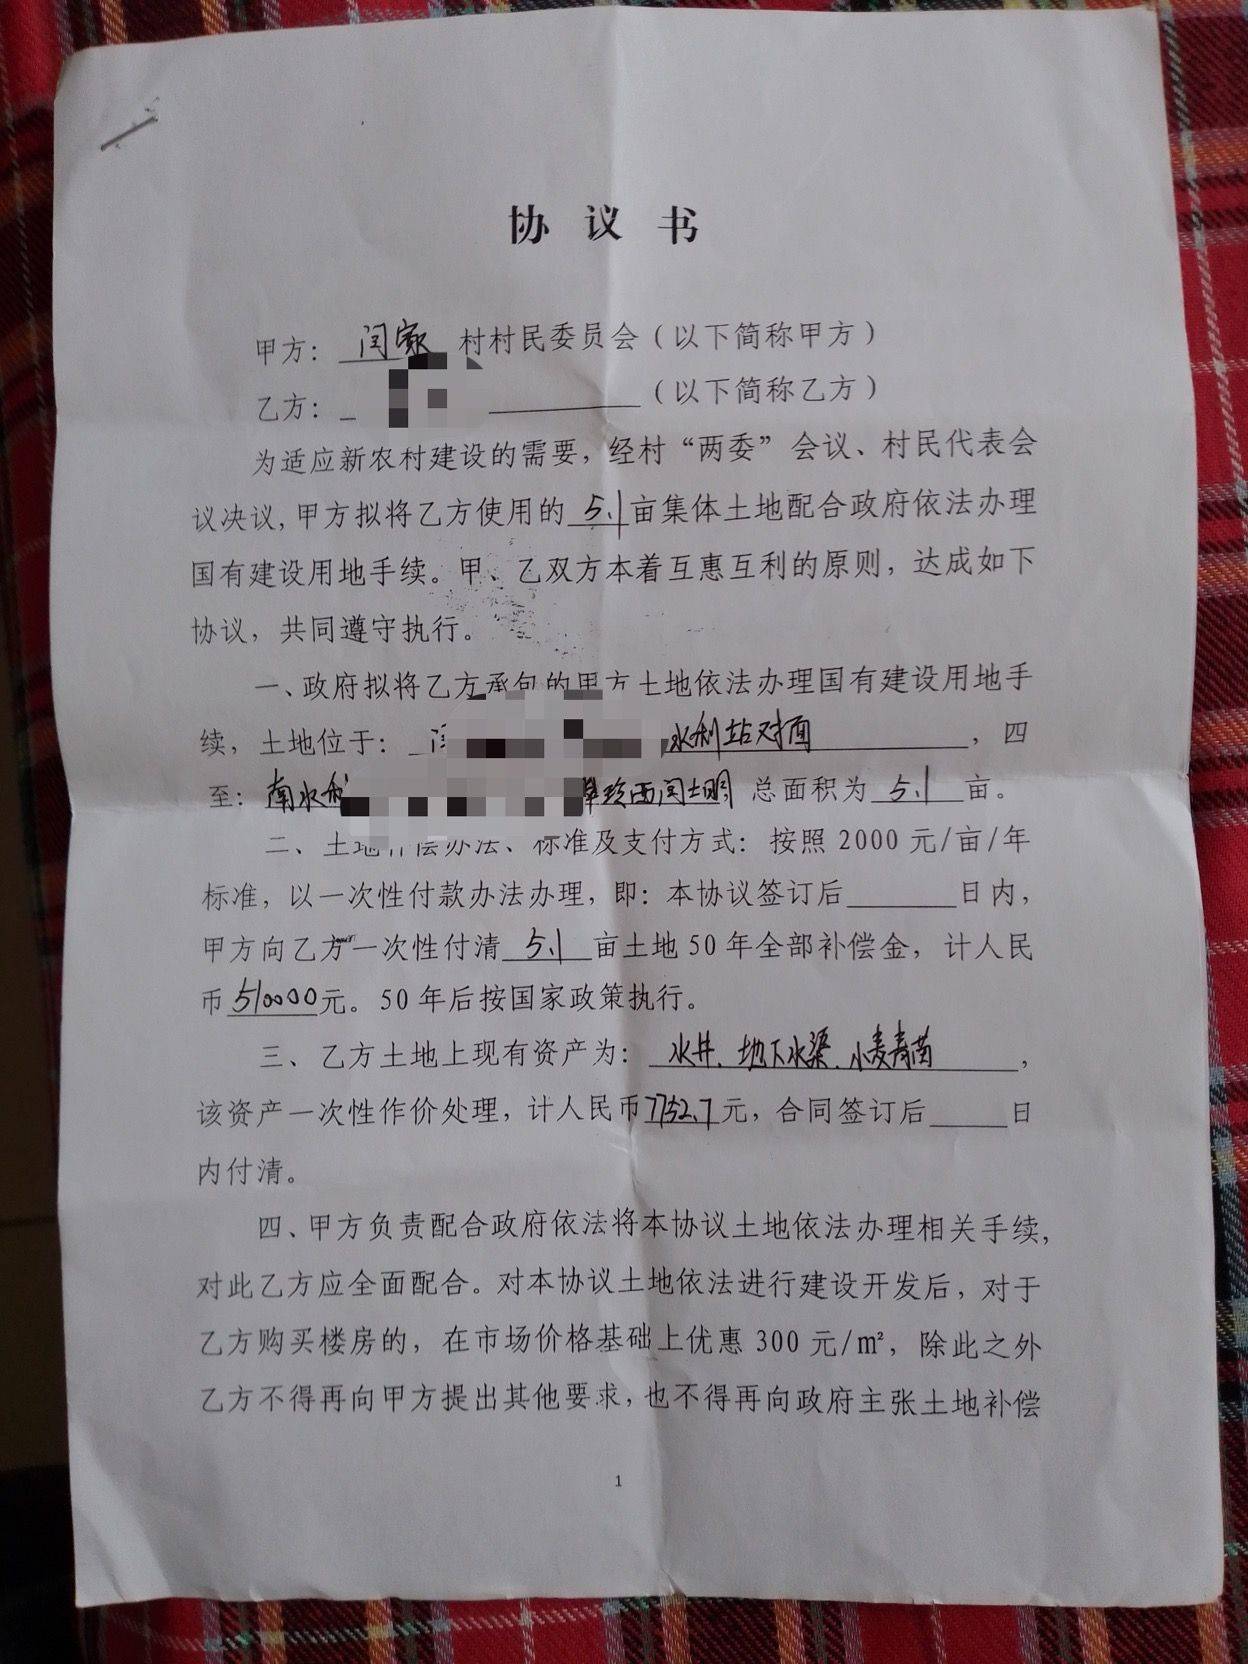 协议书
甲方：闫家 村村民委员会（以下简称甲方）
乙方：（以下简称乙方）
为适应新农村建设的需要，经村“两委”会议、村民代表会
议决议，甲方拟将乙方使用的 5.1 亩集体土地配合政府依法办理
国有建设用地手续。甲、乙双方本着互惠互利的原则，达成如下
协议，共同遵守执行。
一、政府拟将乙方承包的甲方土地依法办理国有建设用地手
续，土地位于：水利站对面，四
至：南水 西闫 总面积为 5.1 亩。
二、土地补偿办法、标准及支付方式：按照 2000 元/亩/年
标准，以一次性付款办法办理，即：本协议签订后____日内，
甲方向乙方一次性付清 5.1 亩土地 50 年全部补偿金，计人民
币 510000元。50 年后按国家政策执行。
三、乙方土地上现有资产为：水井、地下水渠、小麦青苗，
该资产一次性作价处理，计人民币7752.7元，合同签订后____日
内付清。
四、甲方负责配合政府依法将本协议土地依法办理相关手续，
对此乙方应全面配合。对本协议土地依法进行建设开发后，对于
乙方购买楼房的，在市场价格基础上优惠 300 元/㎡，除此之外
乙方不得再向甲方提出其他要求，也不得再向政府主张土地补偿
1